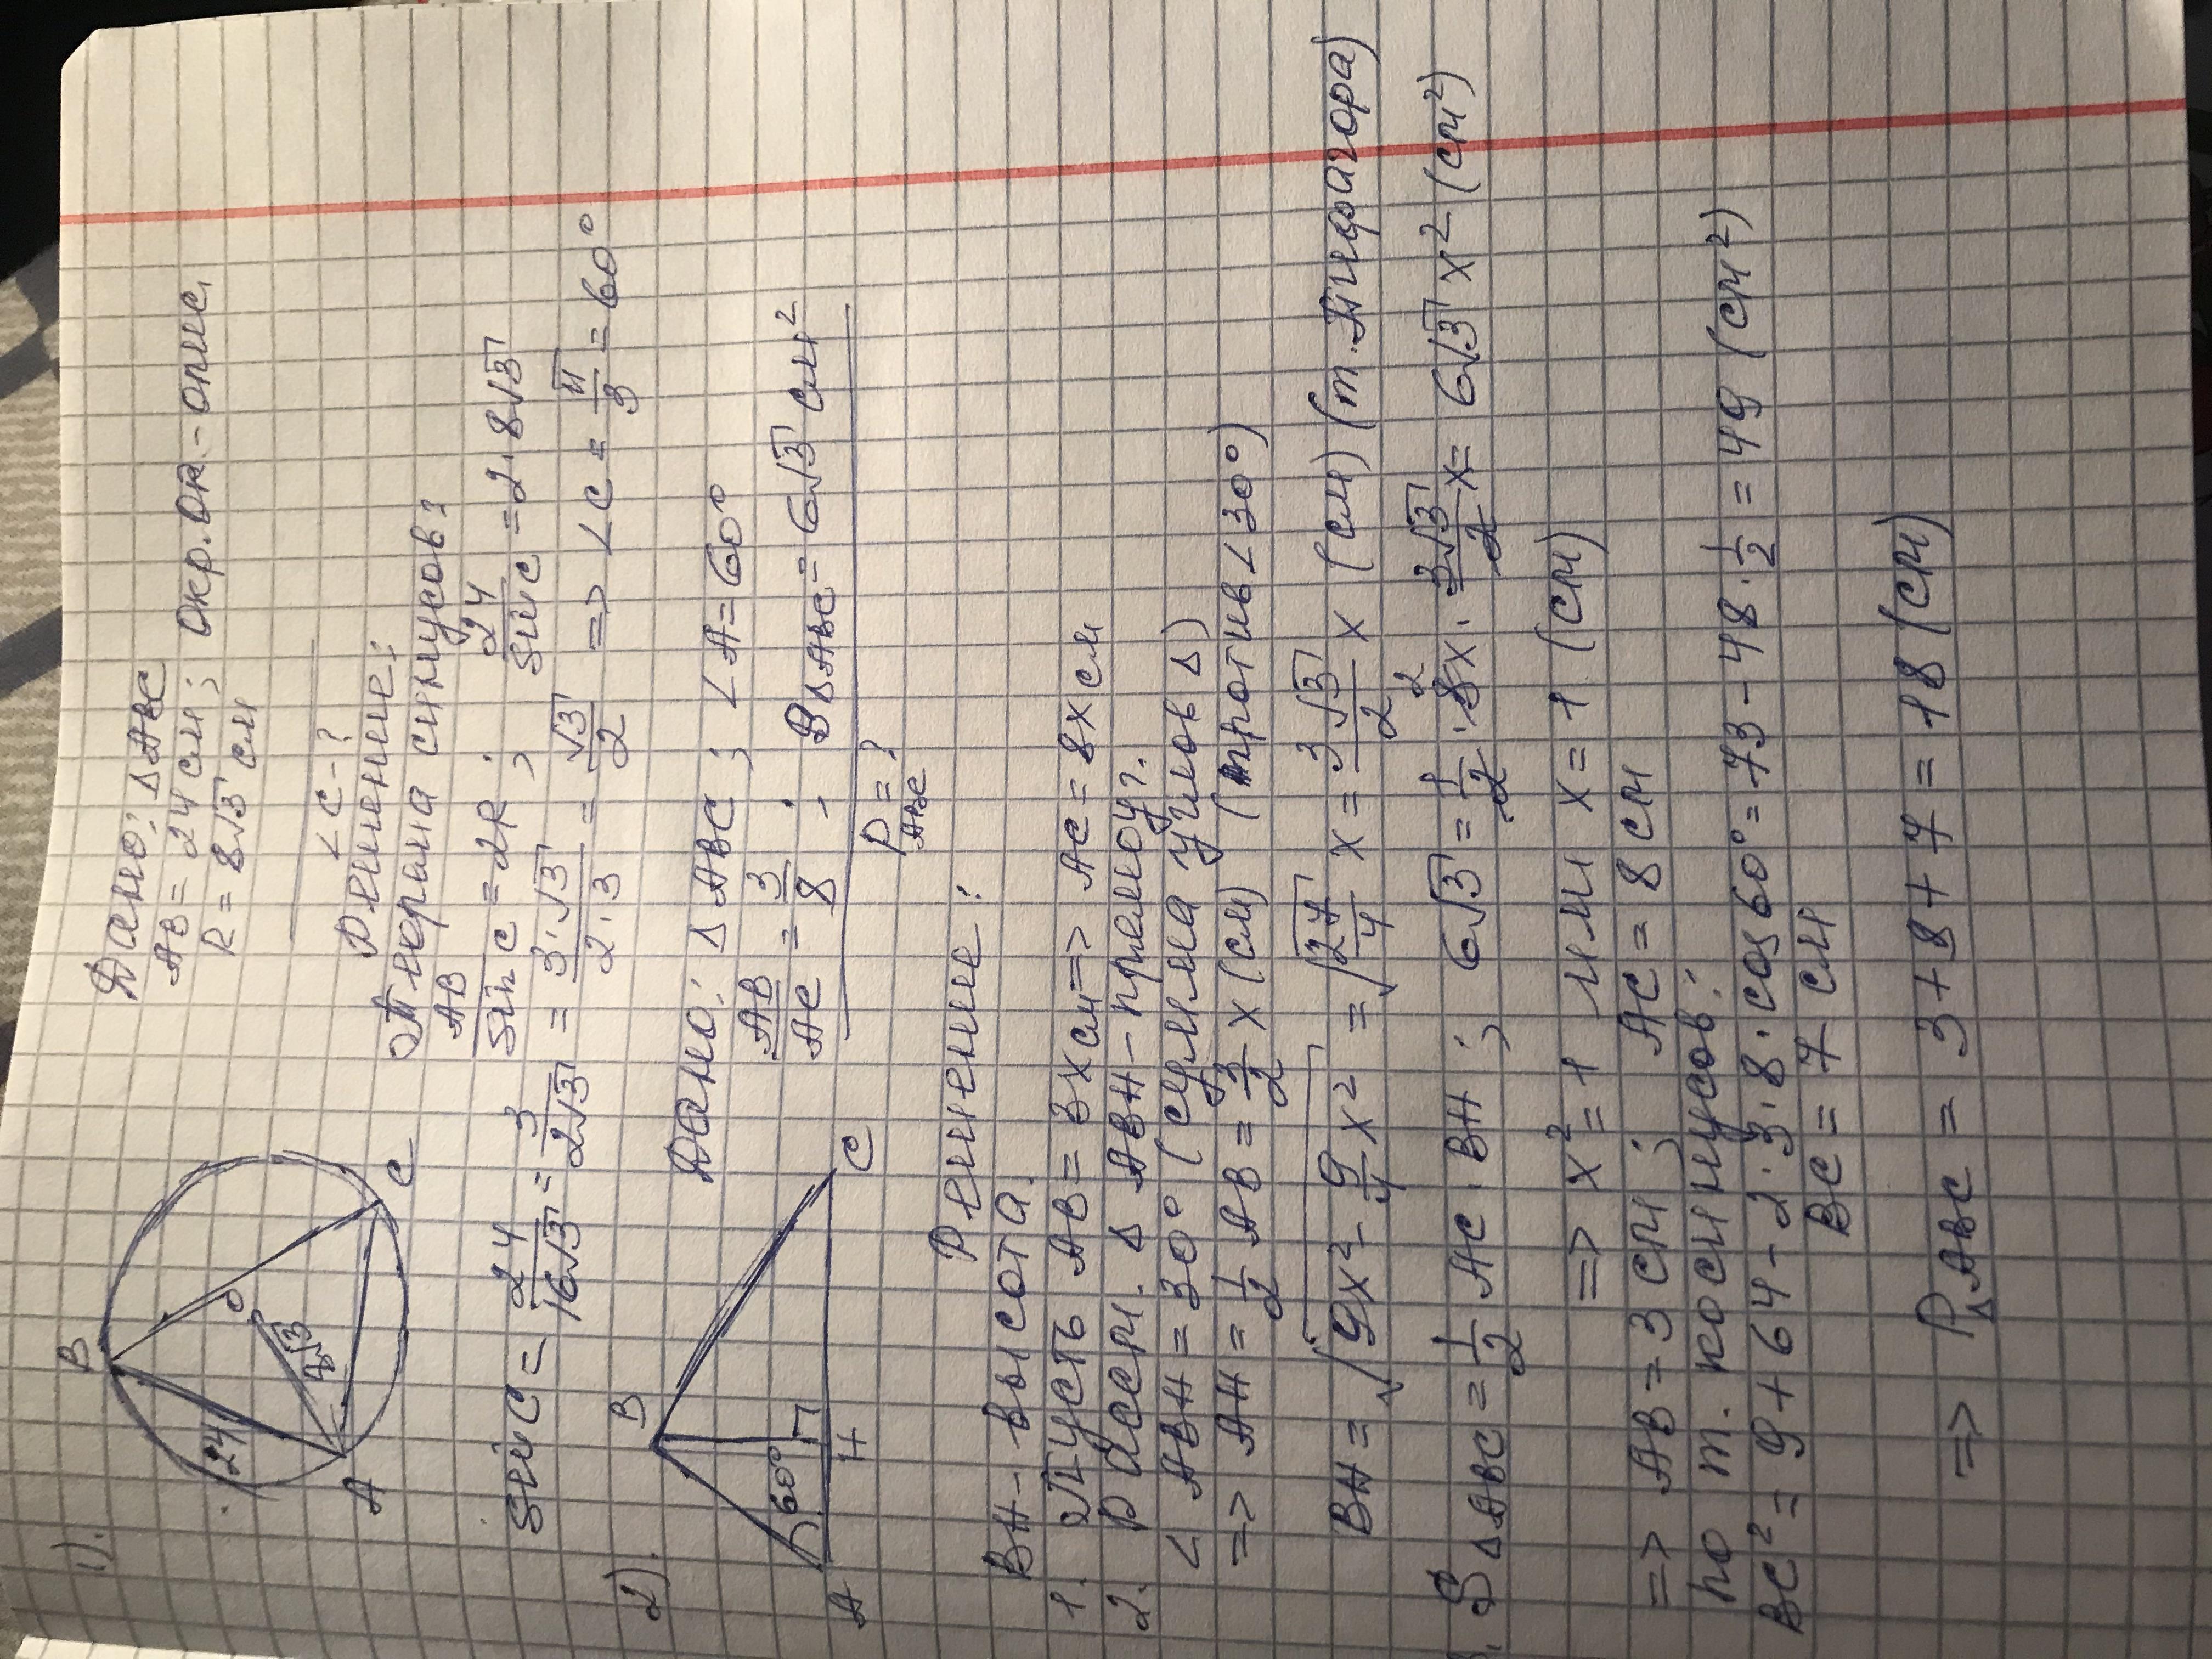 1).
B
24
O
8√3
A
C
Дано: △ABC
AB = 24 см; Окр. Ок - опис.
R = 8√3 см
∠C - ?
Решение:
Теорема синусов:
AB/sin C = 2R ; 24/sin C = 2·8√3
sin C = 24/16√3 = 3/2√3 = 3·√3/2·3 = √3/2 => ∠C = π/3 = 60°
2).
B
60°
A
H
C
Дано: △ABC ; ∠A = 60°
AB/AC = 3/8 ; S△ABC = 6√3 см²
P ABC = ?
Решение:
BH - высота.
1. Пусть AB = 3x см => AC = 8x см
2. Рассм. △ ABH - прямоуг.
∠ABH = 30° (сумма углов △)
=> AH = 1/2 AB = 3/2 x (см) (против ∠30°)
BH = √9x² - 9/4 x² = √27/4 x = 3√3/2 x (см) (т. Пифагора)
3. S△ABC = 1/2 AC · BH ; 6√3 = 1/2 · 8x · 3√3/2 x = 6√3 x² (см²)
=> x² = 1 или x = 1 (см)
=> AB = 3 см ; AC = 8 см
по т. косинусов:
BC² = 9 + 64 - 2·3·8·cos 60° = 73 - 48 · 1/2 = 49 (см²)
BC = 7 см
=> P△ABC = 3 + 8 + 7 = 18 (см)